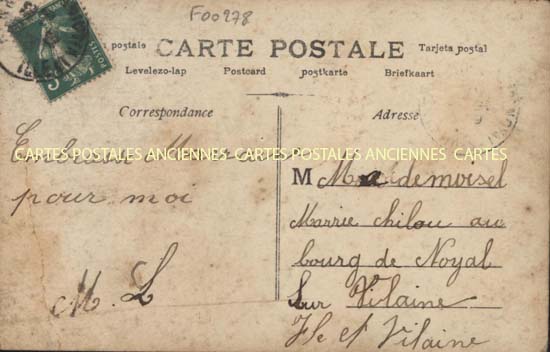 F00278
postale CARTE POSTALE Tarjeta postal
Levelezo-lap Postcard postkarte Briefkaart
Correspondance
Adresse
CARTES POSTALES ANCIENNES CARTES POSTALES ANCIENNES CARTES
pour moi
M. L
M Mademoisel
Marrie chilou au
bourg de Noyal
Sur Vilaine
Ile et Vilaine
POSTES
5